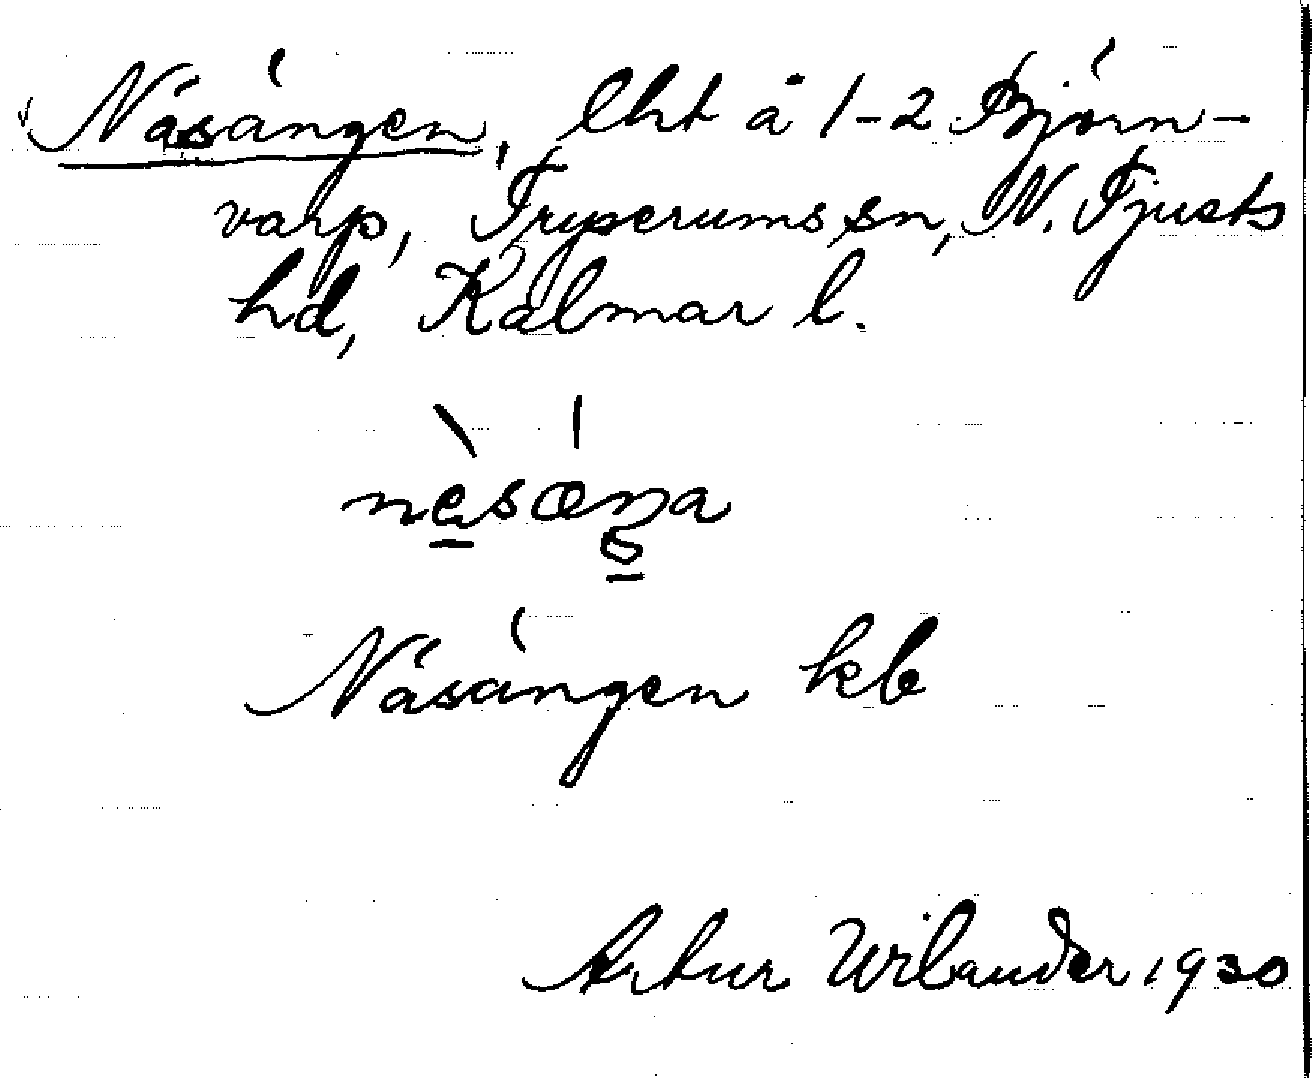 Näsängen, lht å 1-2 Björn-
varp, Tryserums sn, N. Tjusts
hd, Kalmar l.
nèsæŋa
Näsängen kb
Artur Wilander 1930